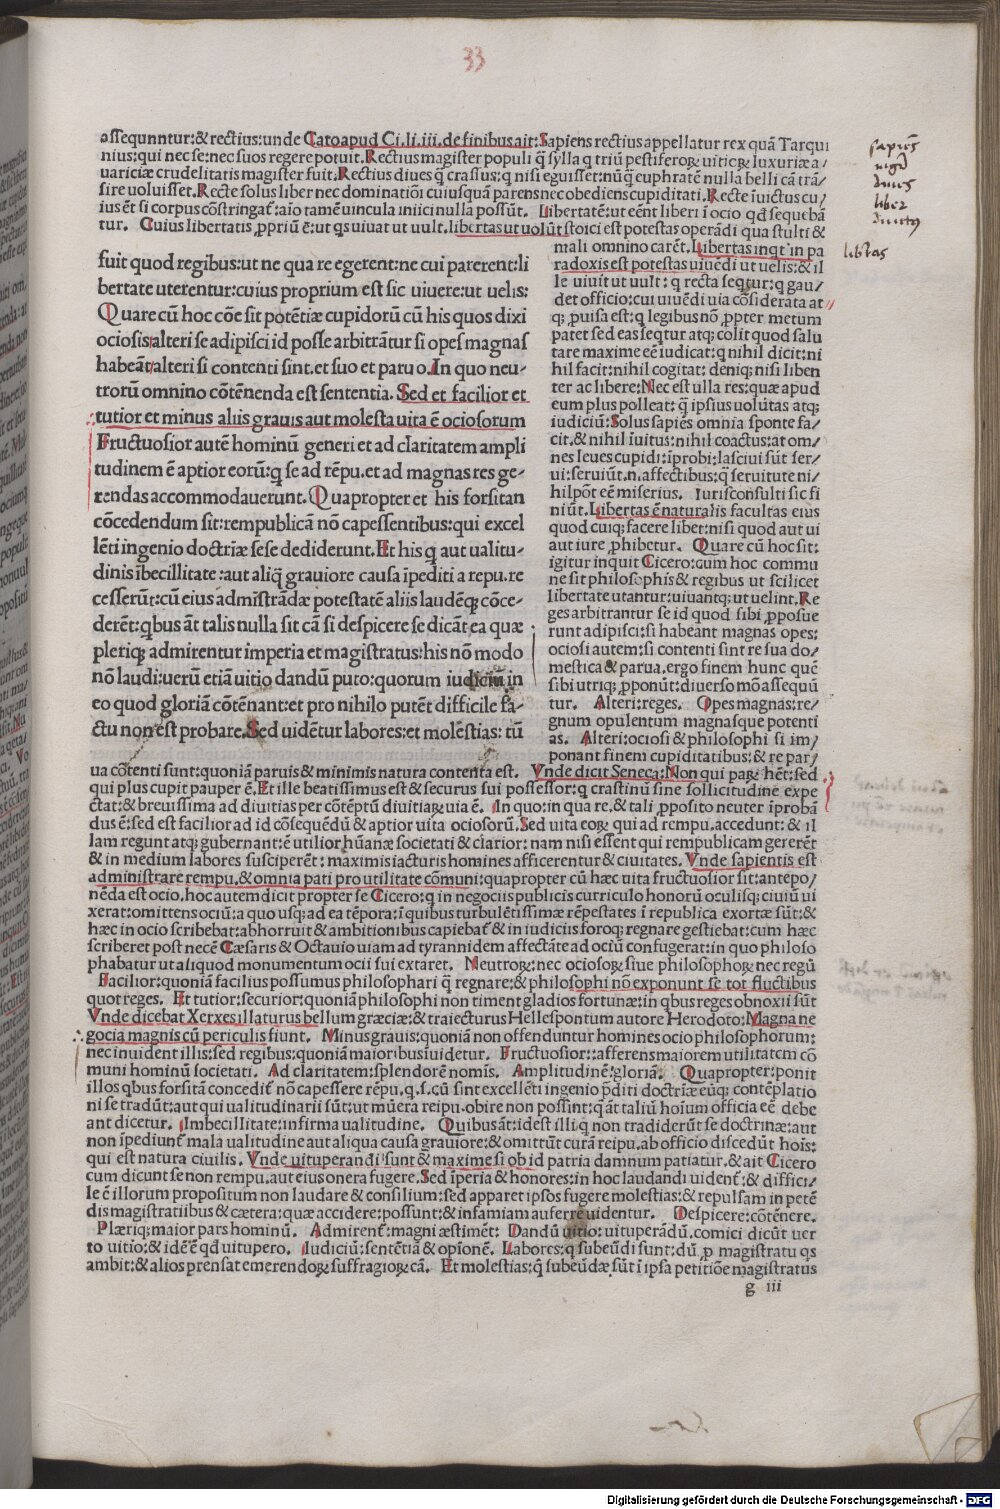 33
assequnntur:& rectius:unde Catoapud Ci.li.iii.de finibus ait: Sapiens rectius appellatur rex quã Tarqui
nius:qui nec se:nec suos regere potuit. Rectius magister populi q̃ sylla q triũ pestiferoꝝ uitioꝝ luxuriæ a/
uariciæ crudelitatis magister fuit. Rectius diues q̃ crassus: q nisi eguisset: nũq̃ euphratē nulla belli cã trã/
sire uoluisset. Recte solus liber nec dominatiõi cuiusquã parens nec obediens cupiditati. Recte ĩuictus cu/
ius ēt si corpus cõstringat̃: aĩo tamē uincula iniici nulla possũt. Libertatē: ut eēnt liberi ĩ ocio qđ sequebã
tur. Cuius libertatis ꝓpriũ ē: ut q̃s uiuat ut uult. libertas ut uolũt stoici est potestas operãdi qua stulti &
mali omnino carēt. Libertas inqt̃ in pa
radoxis est potestas uiuēdi ut uelis: & il
le uiuit ut uult: q recta seq̃tur: q gau/
det officio: cui uiuēdi uia cõsiderata at
qꝫ ꝓuisa est: q legibus nõ ꝓpter metum
paret sed eas seq̃tur atqꝫ colit quod salu
tare maxime eē iudicat: q nihil dicit: ni
hil facit: nihil cogitat: deniqꝫ nisi liben
ter ac libere: Nec est ulla res: quæ apud
eum plus polleat: q̃ ipsius uolũtas atqꝫ
iudiciũ: Solus sapiēs omnia sponte fa/
cit. & nihil ĩuitus: nihil coactus: at om/
nes leues cupidi: ĩprobi: lasciui sũt ser/
ui: seruiũt.n. affectibus: q̃ seruitute ni/
hil põt eē miserius. Iurisconsulti sic fi
niũt. Libertas ē naturalis facultas eius
quod cuiqꝫ facere libet: nisi quod aut ui
aut iure ꝓhibetur. Quare cũ hoc sit:
igitur inquit Cicero: cum hoc commu
ne sit philosophis & regibus ut scilicet
libertate utantur: uiuantqꝫ ut uelint. Re
ges arbitrantur se id quod sibi ꝓposue
runt adipisci: si habeant magnas opes:
ociosi autem: si contenti sint re sua do/
mestica & parua. ergo finem hunc quē
sibi utriqꝫ ꝓponũt: diuerso mõ assequũ
tur. Alteri: reges. Opes magnas: re/
gnum opulentum magnasque potenti
as. Alteri: ociosi & philosophi si im/
ponant finem cupiditatibus: & re par/
fuit quod regibus: ut ne qua re egerent: ne cui parerent: li
bertate uterentur: cuius proprium est sic uiuere: ut uelis:
Quare cũ hoc cõe sit potētiæ cupidorũ cũ his quos dixi
ociosis: alteri se adipisci id posse arbitrãtur si opes magnas
habeãt: alteri si contenti sint. et suo et paruo. In quo neu-
trorũ omnino cõtēnenda est sententia. Sed et facilior et
tutior et minus aliis grauis aut molesta uita ē ociosorum
Fructuosior autē hominũ generi et ad claritatem ampli
tudinem ē aptior eorũ: q̃ se ad rēpu. et ad magnas res ge-
rendas accommodauerunt. Quapropter et his forsitan
cõcedendum sit: rempublicã nõ capessentibus: qui excel
lēti ingenio doctriæ sese dediderunt. Et his q̃ aut ualitu-
dinis ĩbecillitate: aut aliq̃ grauiore causa ĩpediti a repu. re
cesserũt: cũ eius admĩstrãdæ potestatē aliis laudēqꝫ cõce-
derēt: q̃bus ãt talis nulla sit cã si despicere se dicãt ea quæ
pleriqꝫ admirentur imperia et magistratus: his nõ modo
nõ laudi: uerũ etiã uitio dandũ puto: quorum iudiciũ in
eo quod gloriã cõtēnant: et pro nihilo putēt difficile fa-
ctu non est probare. Sed uidētur labores: et molestias: tũ
ua cõtenti sunt: quoniã paruis & minimis natura contenta est. Vnde dicit Seneca: Non qui paꝝ hēt: sed
qui plus cupit pauper ē. Et ille beatissimus est & securus sui possessor: q crastinũ sine sollicitudine expe
ctat: & breuissima ad diuitias per cõtēptũ diuitiaꝝ uia ē. In quo: in qua re. & tali ꝓposito neuter ĩprobã
dus ē: sed est facilior ad id cõsequēdũ & aptior uita ociosorũ. Sed uita eoꝝ qui ad rempu. accedunt: & il
lam regunt atqꝫ gubernant: ē utilior hũanæ societati & clarior: nam nisi essent qui rempublicam gererēt
& in medium labores susciperēt: maximis iacturis homines afficerentur & ciuitates. Vnde sapientis est
administrare rempu. & omnia pati pro utilitate cõmuni: quapropter cũ hæc uita fructuosior sit: antepo/
nēda est ocio. hoc autem dicit propter se Cicero: q in negociis publicis curriculo honorũ oculisqꝫ ciuiũ ui
xerat: omittens ociũ: a quo usqꝫ ad ea tēpora: ĩ quibus turbulētissimæ rēpestates ĩ republica exortæ sũt: &
hæc in ocio scribebat: abhorruit & ambitionibus capiebat̃ & in iudiciis foroqꝫ regnare gestiebat: cum hæc
scriberet post necē Cæsaris & Octauio uiam ad tyrannidem affectãte ad ociũ confugerat: in quo philoso
phabatur ut aliquod monumentum ocii sui extaret. Neutroꝝ: nec ociosoꝝ siue philosophoꝝ nec regũ
Facilior: quoniã facilius possumus philosophari q̃ regnare: & philosophi nõ exponunt se tot fluctibus
quot reges. Et tutior: securior: quoniã philosophi non timent gladios fortunæ: in q̃bus reges obnoxii sũt
Vnde dicebat Xerxes illaturus bellum græciæ: & traiecturus Hellespontum autore Herodoto: Magna ne
gocia magnis cũ periculis fiunt. Minus grauis: quoniã non offenduntur homines ocio philosophorum:
nec inuident illis: sed regibus: quoniã maioribus ĩuidetur. Fructuosior: afferens maiorem utilitatem cõ
muni hominũ societati. Ad claritatem: splendorē nomĩs. Amplitudinē: gloriã. Quapropter: ponit
illos q̃bus forsitã concedit̃ nõ capessere rēpu. q.s. cũ sint excellēti ingenio p̃diti doctriæ eũqꝫ contēplatio
ni se tradũt: aut qui ualitudinarii sũt: ut mũera reipu. obire non possint: q̃ ãt taliũ hoĩum officia eē debe
ant dicetur. Imbecillitate: infirma ualitudine. Quibus ãt: idest illi q̃ non tradiderũt se doctrinæ: aut
non ĩpediunt̃ mala ualitudine aut aliqua causa grauiore: & omittũt curã reipu. ab officio discedũt hoĩs:
qui est natura ciuilis. Vnde uituperandi sunt & maxime si ob id patria damnum patiatur. & ait Cicero
cum dicunt se non rempu. aut eius onera fugere. Sed ĩperia & honores: in hoc laudandi uident̃: & diffici/
le ē illorum propositum non laudare & consilium: sed apparet ipsos fugere molestias: & repulsam in petē
dis magistratiibus & cætera: quæ accidere: possunt: & infamiam auferre uidentur. Despicere: cõtēnere.
Plæriqꝫ: maior pars hominũ. Admirent̃: magni æstimēt: Dandũ uitio: uituperãdũ. comici dicũt uer
to uitio: & idē ē qđ uitupero. Iudiciũ: sentētiã & opionē. Labores: q̃ subeũdi sunt: dũ ꝓ magistratu q̃s
ambit: & alios prensat emerendoꝝ suffragioꝝ cã. Et molestias: q̃ subeũdæ sũt ĩ ipsa petitiõe magistratus
g iii
sapiēs
diues
liber
libtas
Digitalisierung gefördert durch die Deutsche Forschungsgemeinschaft - DFG